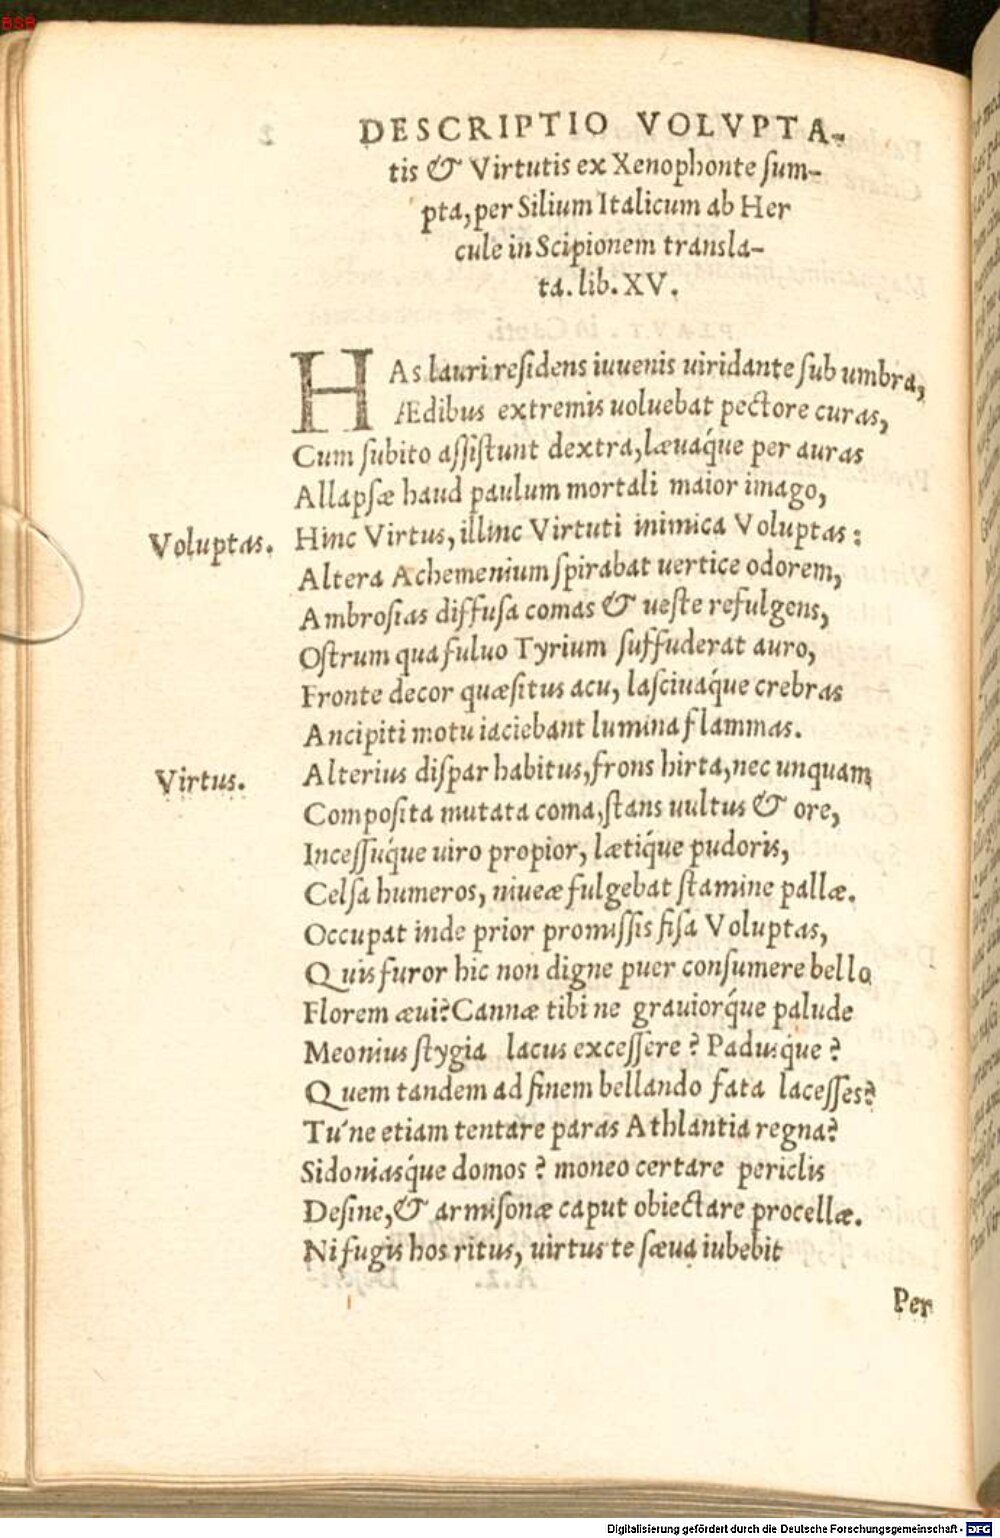 BSB
DESCRIPTIO VOLVPTA-
tis & Virtutis ex Xenophonte ſum-
pta, per Silium Italicum ab Her
cule in Scipionem transla-
ta. lib. XV.
HAs lauri reſidens iuuenis uiridante ſub umbra,
Ædibus extremis uoluebat pectore curas,
Cum ſubito aſſiſtunt dextra, læuaq́ue per auras
Allapſæ haud paulum mortali maior imago,
Voluptas. Hinc Virtus, illinc Virtuti inimica Voluptas:
Altera Achemenium ſpirabat uertice odorem,
Ambroſias diffuſa comas & ueſte refulgens,
Oſtrum qua fuluo Tyrium ſuffuderat auro,
Fronte decor quæſitus acu, laſciuaq́ue crebras
Ancipiti motu iaciebant lumina flammas.
Virtus. Alterius diſpar habitus, frons hirta, nec unquam
Compoſita mutata coma, ſtans uultus & ore,
Inceſſuq́ue uiro propior, lætiq́ue pudoris,
Celſa humeros, niueæ fulgebat ſtamine pallæ.
Occupat inde prior promiſſis fiſa Voluptas,
Quis furor hic non digne puer conſumere bello
Florem æui? Cannæ tibi ne grauiorq́ue palude
Meonius ſtygia lacus exceſſere? Padusq́ue?
Quem tandem ad finem bellando fata laceſſes?
Tu´ne etiam tentare paras Athlantia regna?
Sidoniasq́ue domos? moneo certare periclis
Deſine, & armiſonæ caput obiectare procellæ.
Ni fugis hos ritus, uirtus te ſæua iubebit
Per
Digitalisierung gefördert durch die Deutsche Forschungsgemeinschaft - DFG